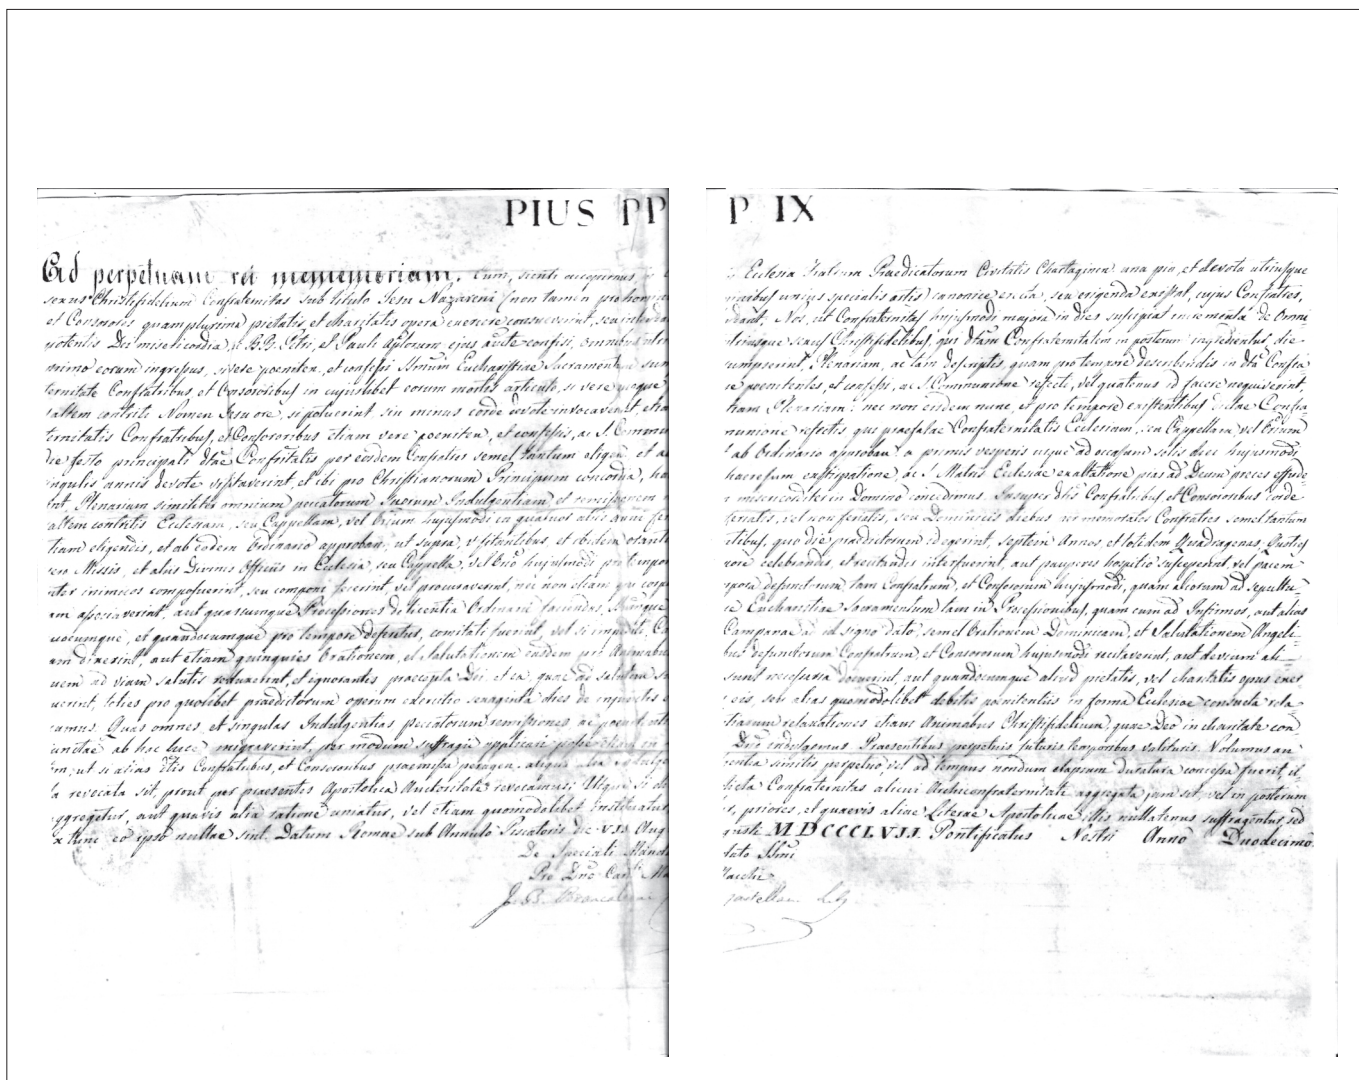 PIUS PP
Ad perpetuam rei mememoriam. Cum, sicuti accepimus in
sexus Christifidelium Confraternitas sub titulo Jesu Nazareni (non tamen pro hom
et Consorores quamplurima pietatis, et charitatis opera exercere consueverint, seu
potentis Dei misericordia, ac B.B. Petri, et Pauli Aplorum ejus aucte confisi, omnibus
primo eorum ingressus, si vere poeniten. et confessi SSmum Eucharistiae Sacramentum sum
ternitate Confratribus, et Consororibus in cujuslibet eorum mortis articulo, si vere quoque
saltem contriti Nomen Jesu ore, si potuerint, sin minus corde devote invocaverint, etiam
ternitatis Confratribus, et Consororibus etiam vere poeniten. et confessis, ac S. Commu
die festo principali dtae Confritatis per eosdem Confratres semel tantum eligen. et ab
singulis annis devote visitaverint, et ibi pro Christianorum Principum concordia, ha
int, Plenariam similiter omnium peccatorum suorum Indulgentiam, et remissionem
saltem contritis Ecclesiam, seu Cappellam, vel Orium hujusmodi in quatuor aliis anni fer
tium eligendis, et ab eodem Ordinario approban. ut supra, visitantibus, et ibidem orant
vero Missis, et aliis Divinis Officiis in Ecclesia, seu Cappella, vel Orio hujusmodi pro tempo
inter inimicos composuerint, seu componi fecerint, vel procuraverint, nec non etiam qui corpo
am associaverint, aut quascumque Processiones de licentia Ordinarii faciendas, SSmumque
quocumque, et quandocumque pro tempore deferetur, comitati fuerint, vel si impediti, Ca
am dixerint, aut etiam quinquies Orationem, et Salutationem easdem pro Animabus
quem ad viam salutis reduxerint, et ignorantes praecepta Dei, et ea, quae ad salutem
uerint, toties pro quolibet praedictorum operum exercitio sexaginta dies de injunctis
xamus. Quas omnes et singulas Indulgentias peccatorum remissiones ac poenit.
junctae ab hac luce migraverint, per modum suffragii applicari posse etiam in
m, ut si alias dtis Confratribus, et Consororibus praemissa peragen. aliqua alia indulge
la revocata sit, prout per praesentes Apostolica Auctoritate revocamus: Utque si d
aggregetur, aut quavis alia ratione uniatur, vel etiam quomodolibet instituatur
x tunc eo ipso nullae sint. Datum Romae sub Annulo Piscatoris Die VII Aug
De Speciali Mand
Pro Dno Card. Ma
J. B. Brancaleoni
P IX
Ecclesia Fratrum Praedicatorum Civitatis Chartaginen. una pia, et devota utriusque
nibus unius specialis artis) canonice erecta, seu erigenda existat, cujus Confratres,
Nos, ut Confraternitas hujusmodi majora in dies suscipiat incrementa de Omni
utriusque sexus Christifidelibus, qui dtam Confraternitatem in posterum ingredientur, die
sumpserint, Plenariam, ac tam descriptis, quam pro tempore describendis in dta Confra
e poenitentes, et confessi, ac S. Communione refecti, vel quatenus id facere nequiverint,
tiam Plenariam: nec non eisdem nunc, et pro tempore existentibus dictae Confra
munione refectis qui praefatae Confraternitatis Ecclesiam, seu Cappellam, vel Orium
ab Ordinario approban. a primis vesperis usque ad occasum solis diei hujusmodi
haeresum extirpatione, ac S. Matris Ecclesiae exaltatione pias ad Deum preces effude
misericorditer in Domino concedimus. Insuper dtis Confratribus, et Consororibus corde
feriatis, vel non feriatis, seu Dominicis diebus per memoratos Confratres semel tantum
tibus, quo die praedictorum id egerint, septem Annos, et totidem Quadragenas, Quoties
pore celebrandis, et recitandis interfuerint, aut pauperes hospitio susceperint, vel pacem
pora defunctorum tam Confratrum, et Consororum hujusmodi, quam aliorum ad sepultu
ue Eucharistiae Sacramentum tam in Processionibus, quam cum ad Infirmos, aut alias
Campana ad id signo dato, semel Orationem Dominicam, et Salutationem Angeli-
bus defunctorum Confratrum, et Consororum hujusmodi recitaverint, aut devium ali-
sunt necessaria docuerint, aut quandocumque aliud pietatis, vel charitatis opus exer
eis, seu alias quomodolibet debitis poenitentiis in forma Ecclesiae consueta rela
tiarum relaxationes etiam Animabus Christifidelium, quae Deo in charitate con
Dno indulgemus. Praesentibus perpetuis futuris temporibus valituris. Volumus au
gentia similis perpetuo, vel ad tempus nondum elapsum duratura concessa fuerit, il
dicta Confraternitas alicui Archiconfraternitati aggregata jam sit, vel in posterum
r, priores, et quaevis aliae Literae Apostolicae illis nullatenus suffragentur, sed
gusti MDCCCLVII. Pontificatus Nostri Anno Duodecimo.
dato SSmi
Macchi
Castellani